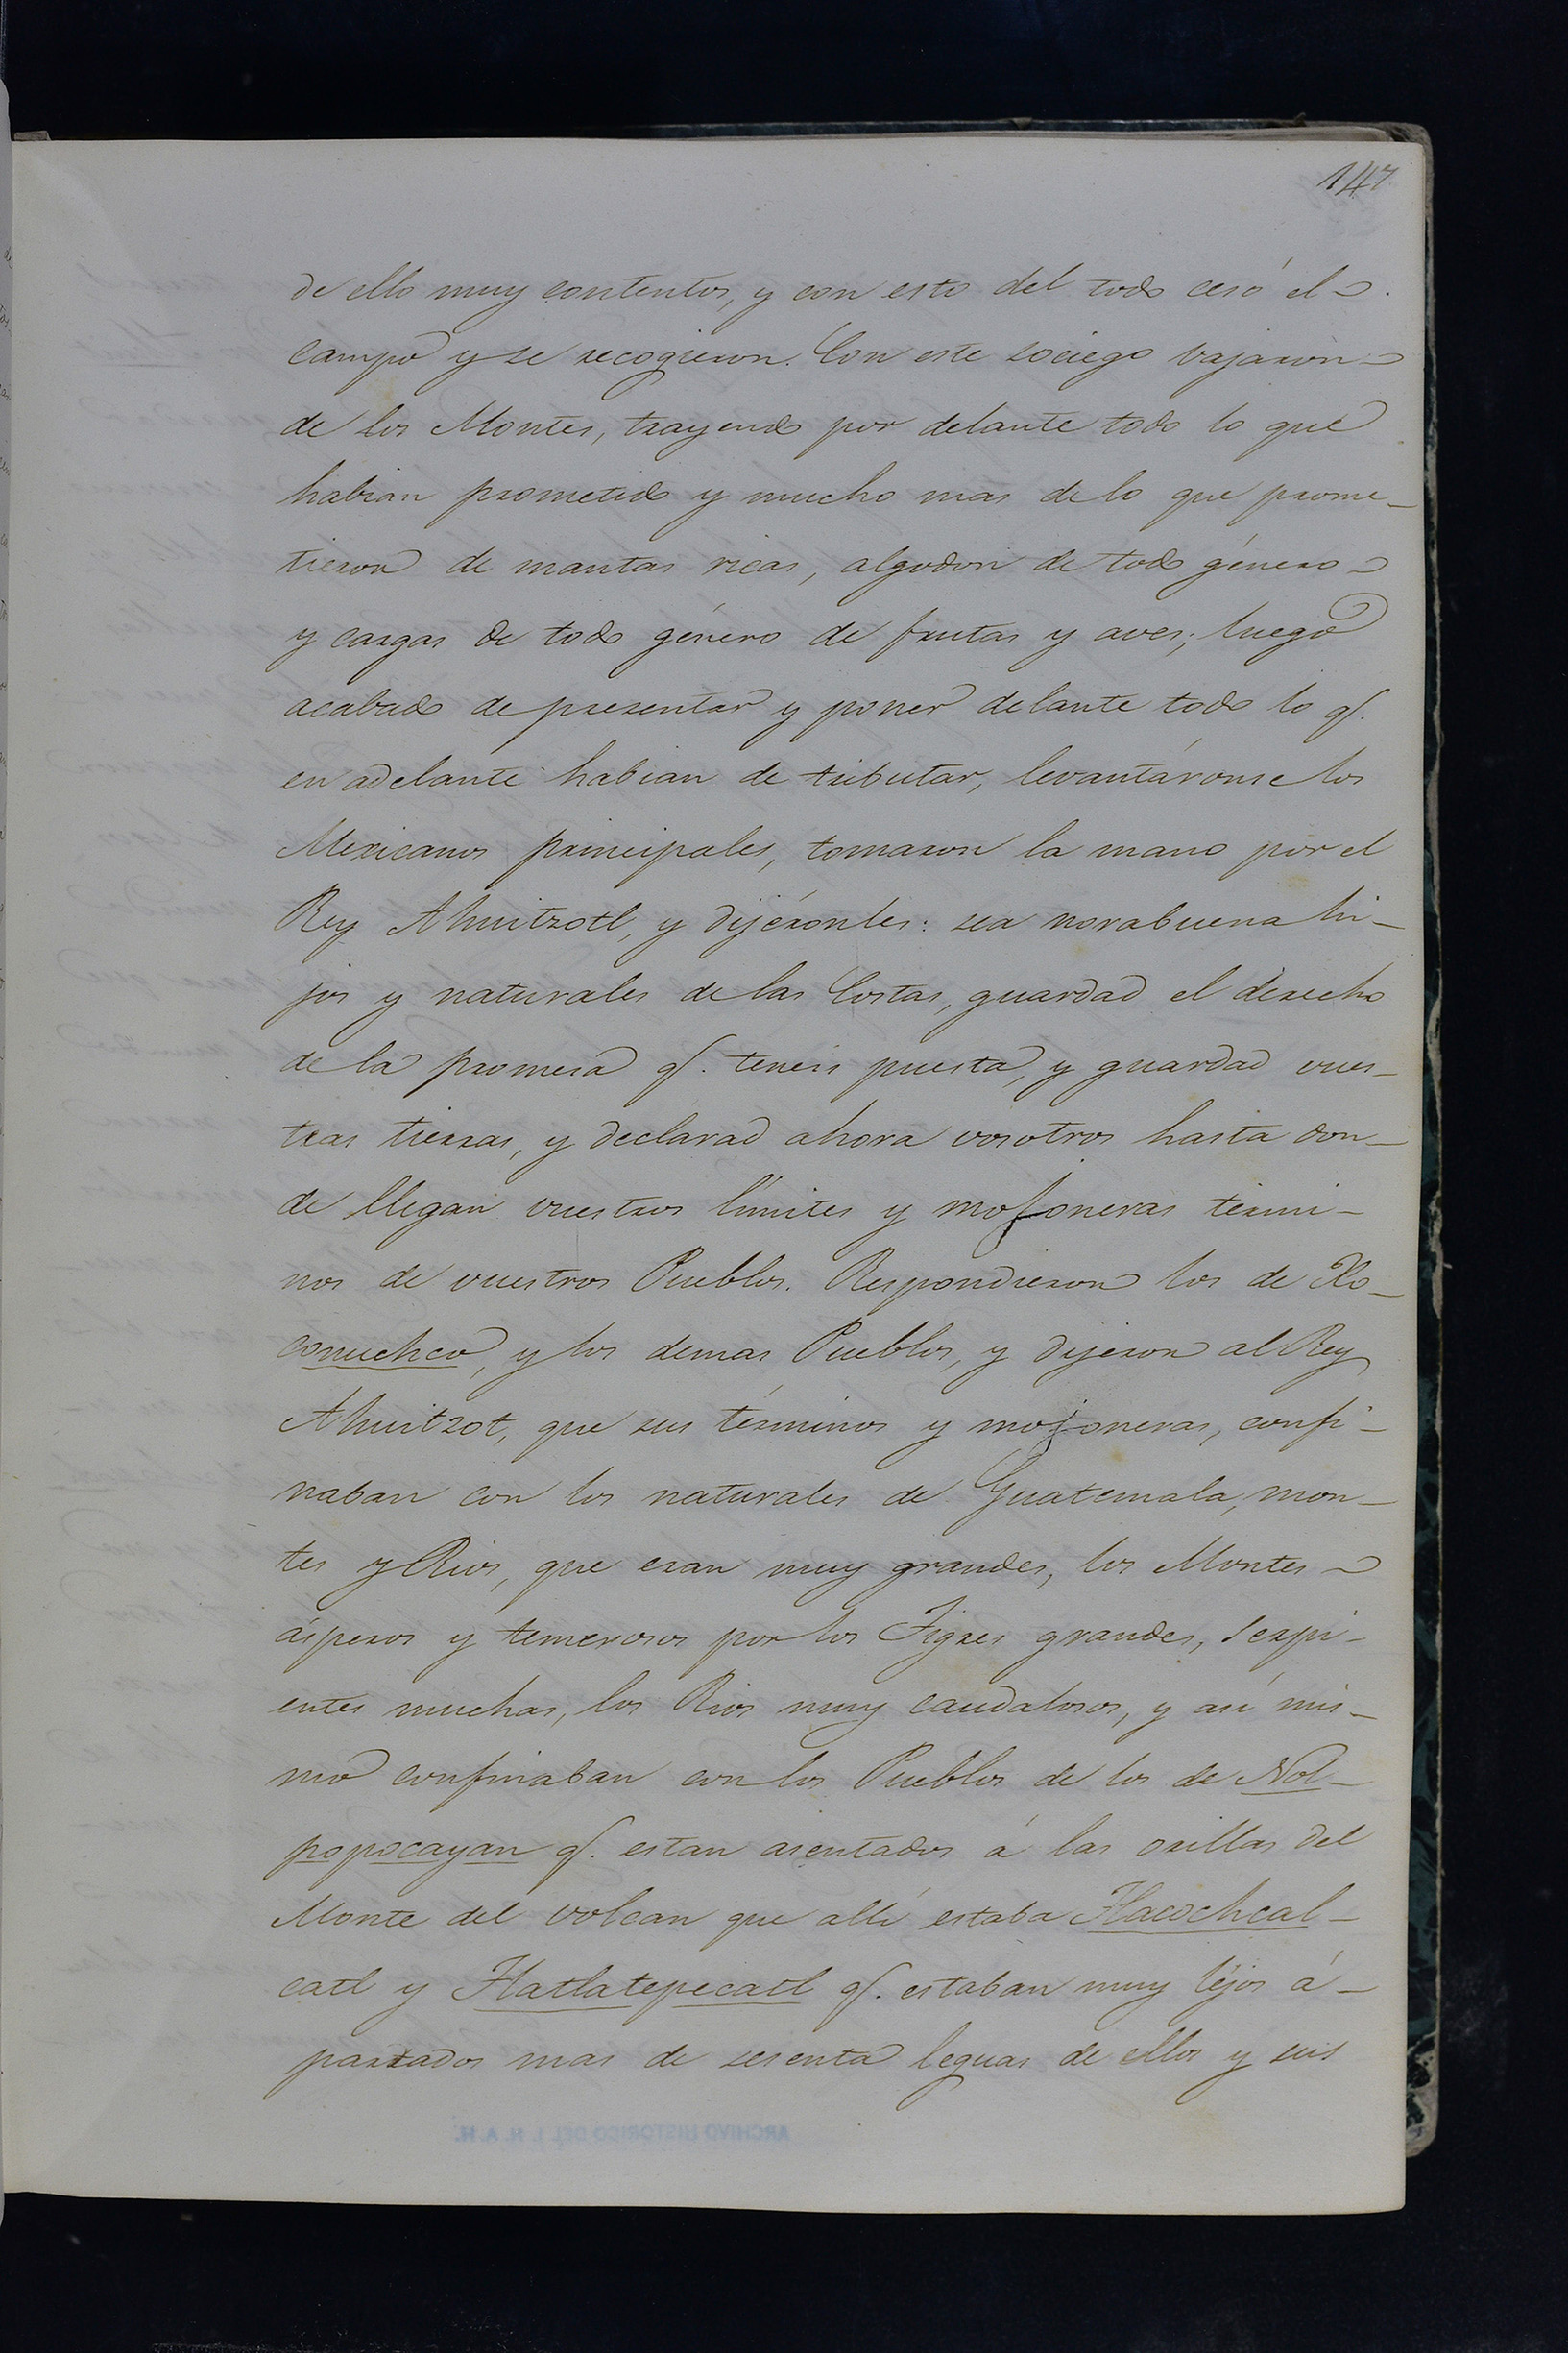 147
de ello muy contentos, y con esto del todo cesó el
campo y se recogieron. Con este sociego vajaron
de los Montes, trayendo por delante todo lo que
habian prometido y mucho mas de lo que prome-
tieron de mantas ricas, algodon de todo género
y cargas de todo género de frutas y aves; luego
acabado de presentar y poner delante todo lo q.
en adelante habian de tributar, levantáronse los
Mexicanos principales, tomaron la mano por el
Rey Ahuitzotl, y dijéronles: sea norabuena hi-
jos y naturales de las Costas, guardad el derecho
de la promesa q. teneis puesta, y guardad vues-
tras tierras, y declarad ahora vosotros hasta don-
de llegan vuestros límites y mojoneras térmi-
nos de vuestros Pueblos. Respondieron los de Xo-
conuchco, y los demas Pueblos, y dijeron al Rey
Ahuitzot, que sus términos y mojoneras, confi-
naban con los naturales de Guatemala, mon-
tes y Rios, que eran muy grandes, los Montes
ásperos y temerosos por los Tigres grandes, Serpi-
entes muchas, los Rios muy caudalosos, y asi mis-
mo confinaban con los Pueblos de los de Nol-
popocayan q. estan asentados á las orillas del
Monte del volcan que allí estaba Tlacochcal-
catl y Tlatlatepecatl q. estaban muy léjos á-
partados mas de sesenta leguas de ellos y sus
ARCHIVO HISTORICO DEL I. N. A. H.